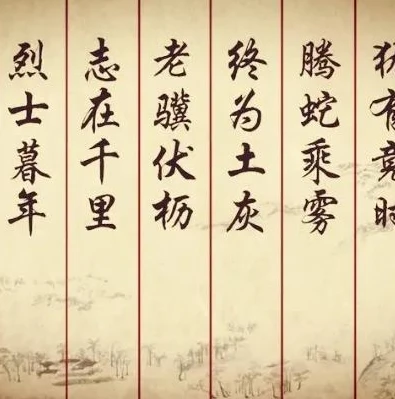 犹有竟时
腾蛇乘雾
终为土灰
老骥伏枥
志在千里
烈士暮年